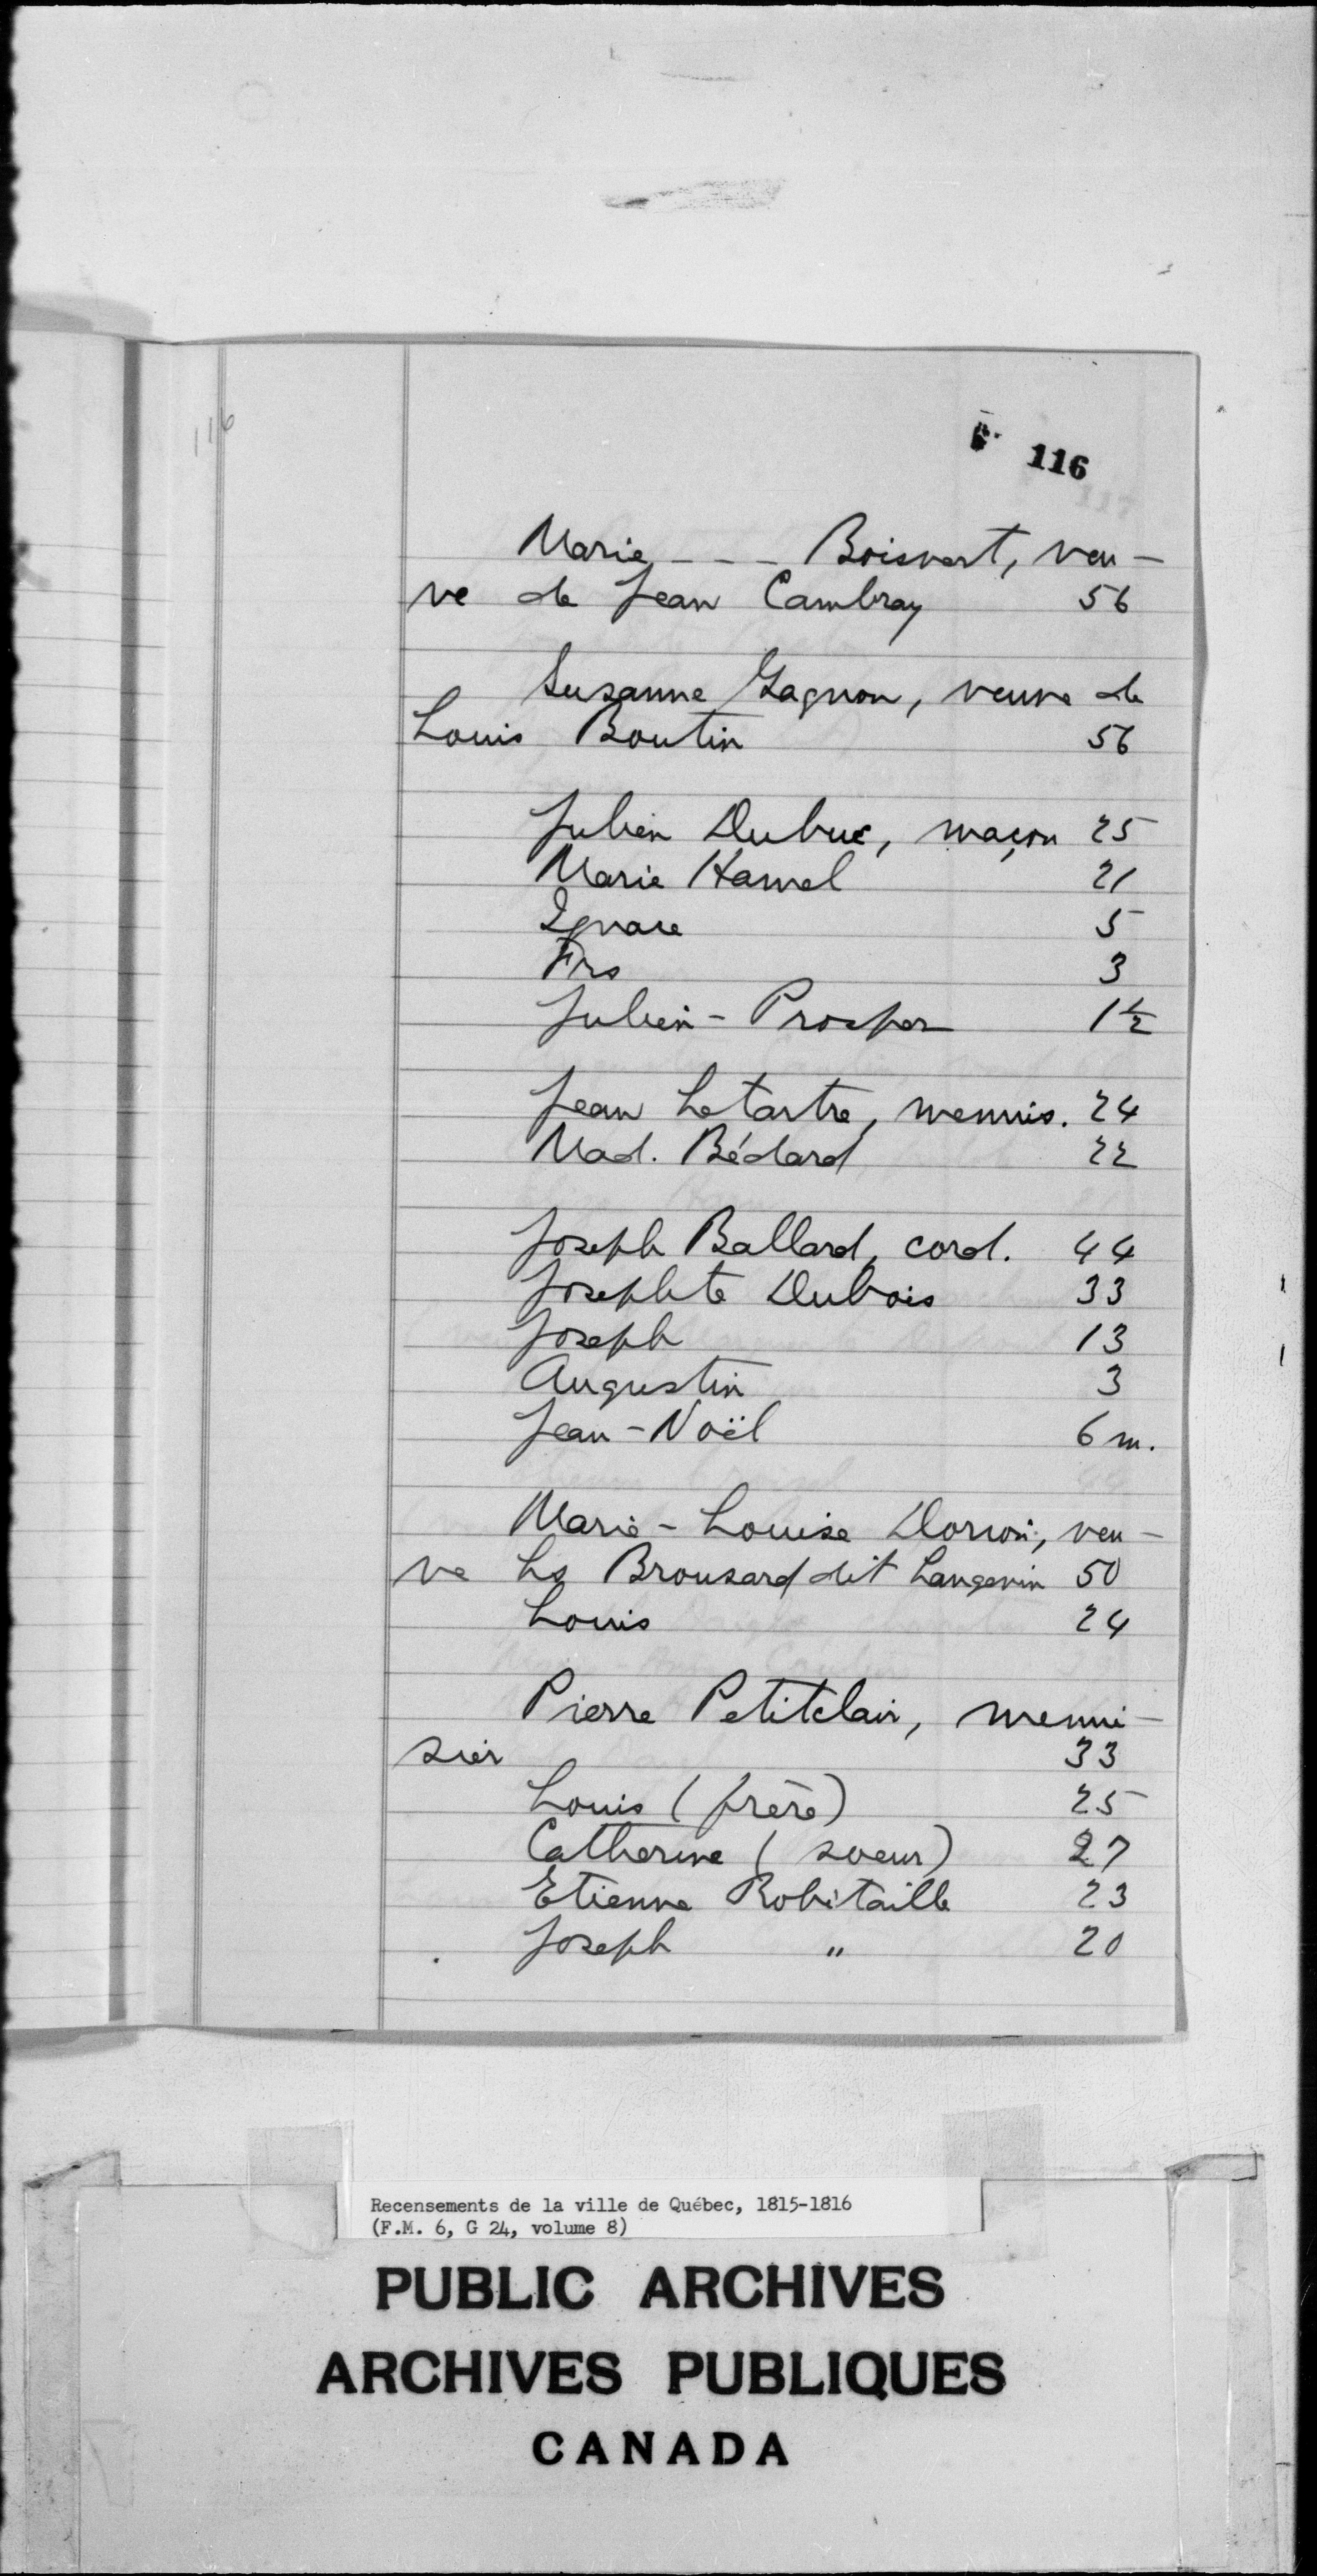 116
116
Marie - - - Boisvert, veu-
ve de Jean Cambray 56
Suzanne Gagnon, veuve de
Louis Boutin 56
Julien Dubuc, maçon 25
Marie Hamel 21
Ignace 5
Frs 3
Julien-Prosper 1½
Jean Letartre, menuis. 24
Mad. Bédard 22
Joseph Ballard, cord. 44
Josephte Dubois 33
Joseph 13
Augustin 3
Jean-Noël 6 m.
Marie-Louise Dorion, veu-
ve Ls Brousard dit Langevin 50
Louis 24
Pierre Petitclair, menui-
sier 33
Louis (frère) 25
Catherine (soeur) 27
Etienne Robitaille 23
Joseph " 20
Recensements de la ville de Québec, 1815-1816
(F.M. 6, G 24, volume 8)
PUBLIC ARCHIVES
ARCHIVES PUBLIQUES
CANADA